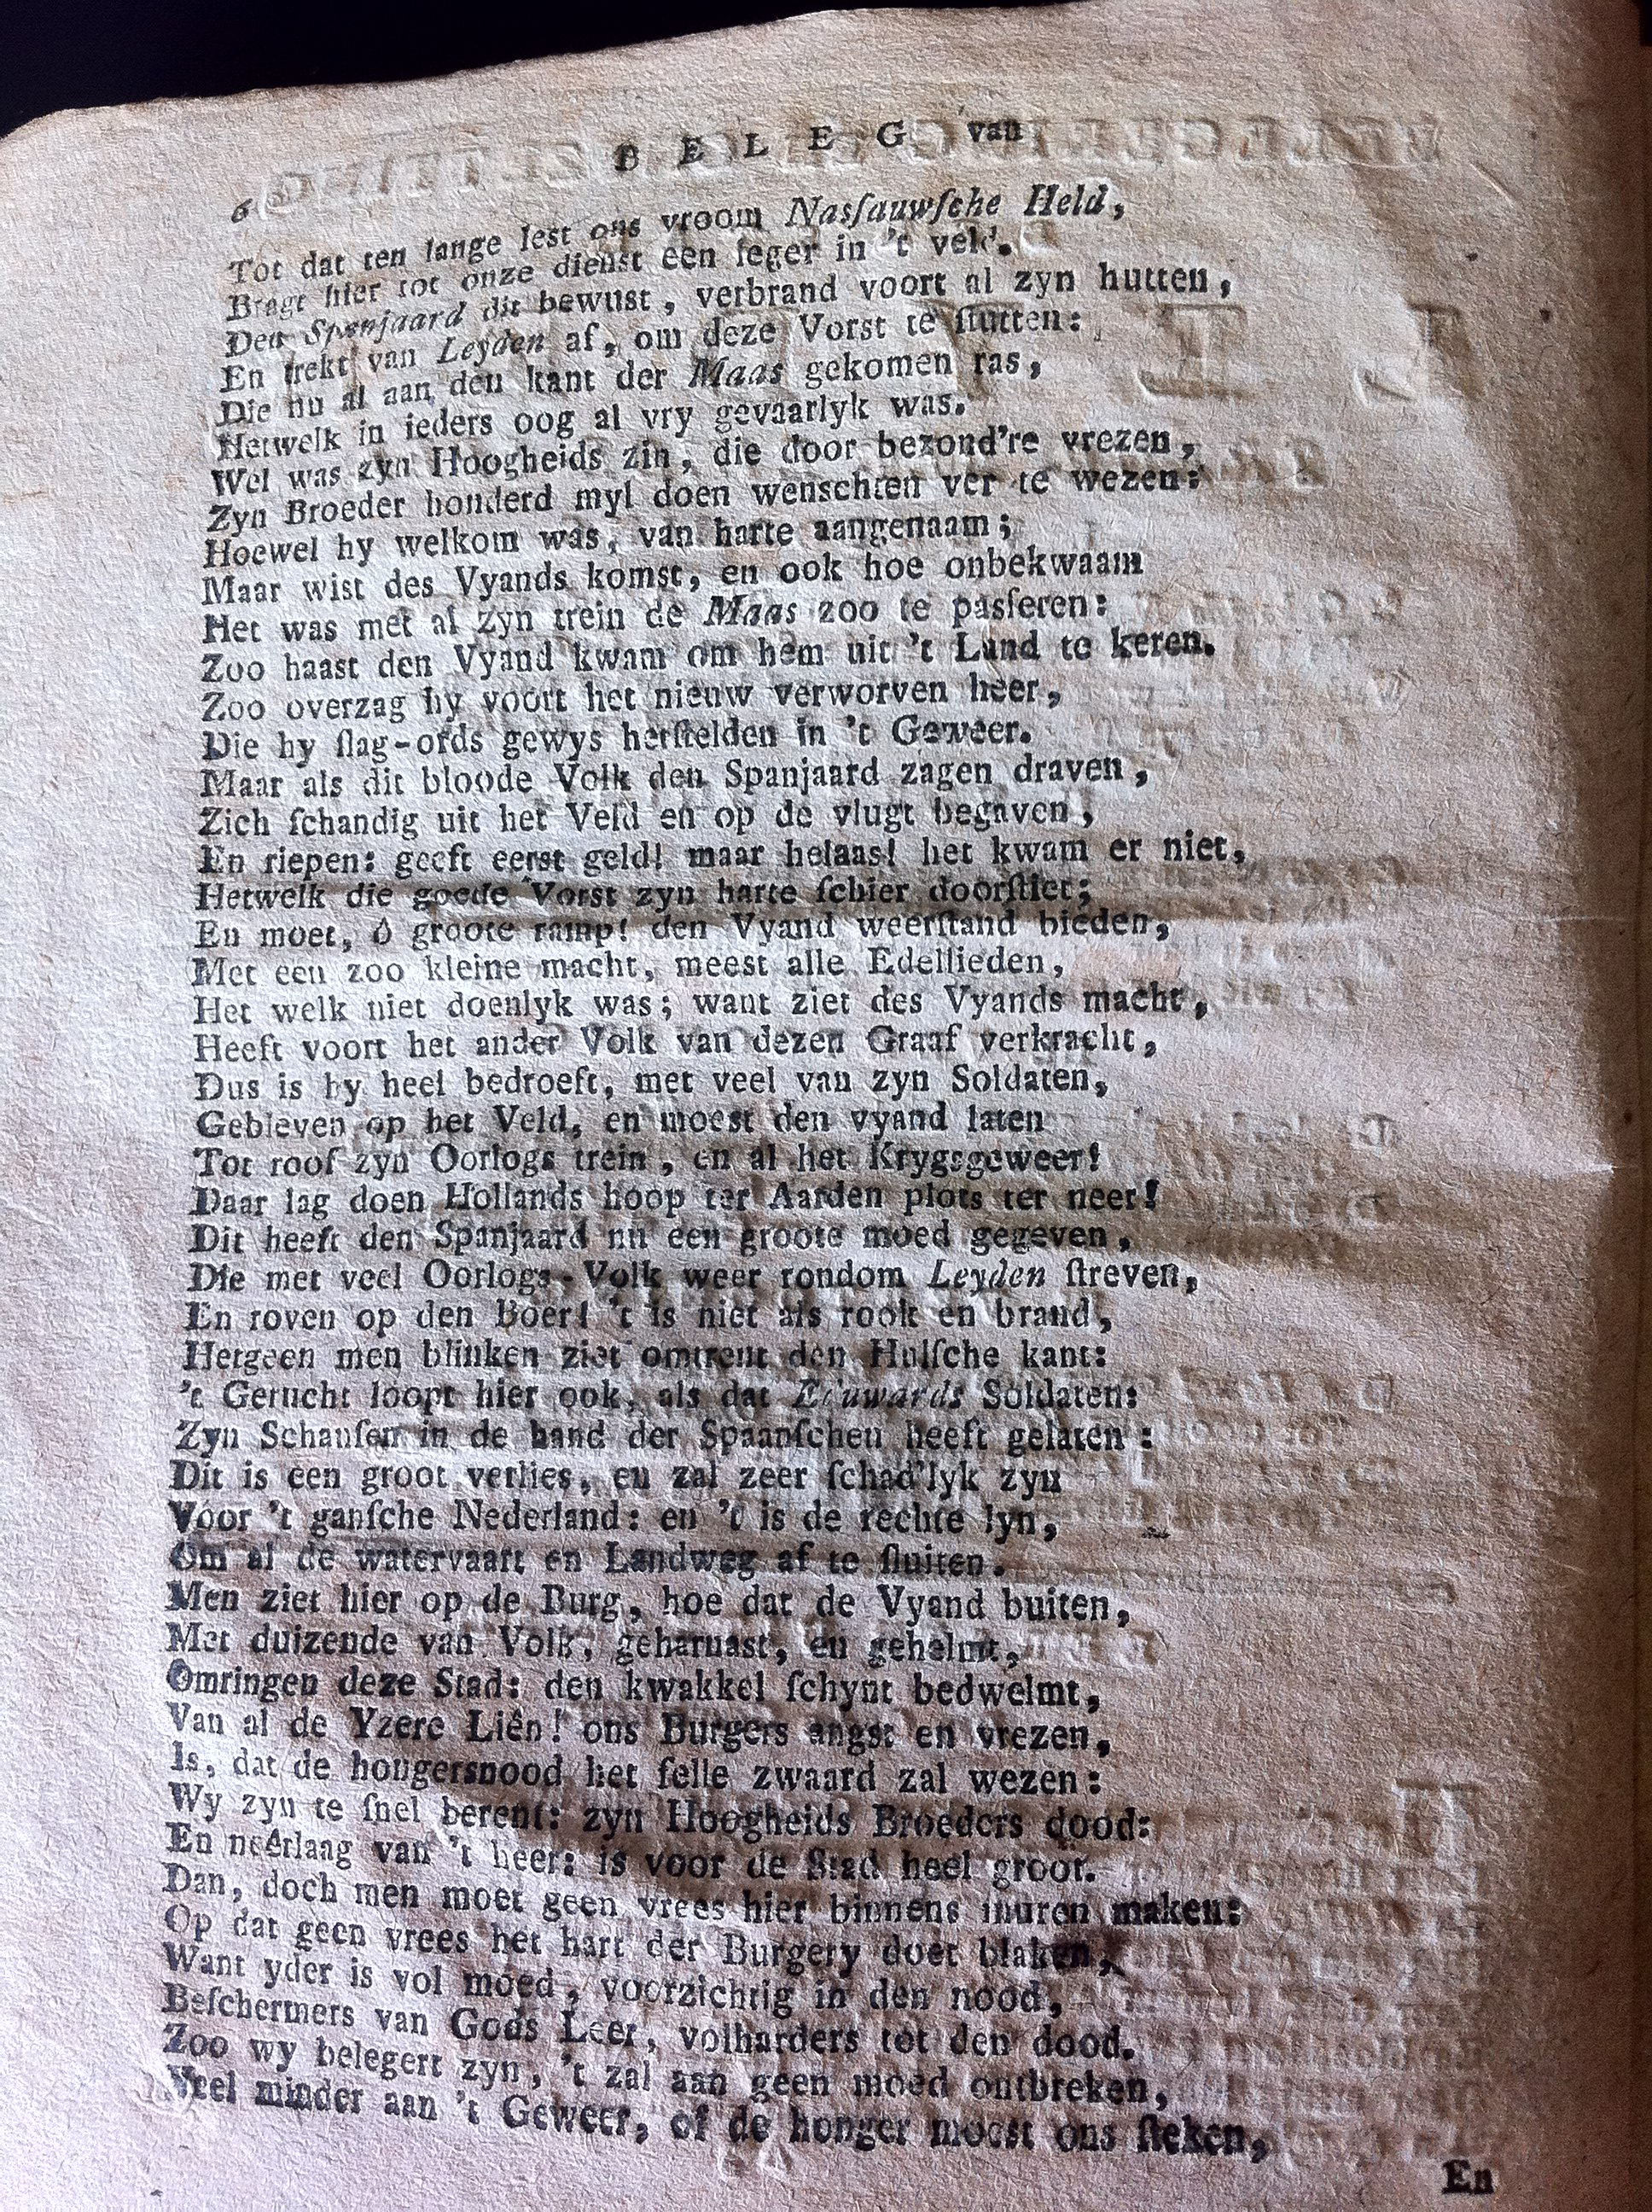 BELEG van
6
Tot dat ten lange lest ons vroom Nasſauwſche Held,
Bragt hier tot onze dienst een leger in 't veld.
Den Spanjaard dit bewust, verbrand voort al zyn hutten,
En trekt van Leyden af, om deze Vorst te ſtutten:
Die nu al aan den kant der Maas gekomen ras,
Hetwelk in ieders oog al vry gevaarlyk was.
Wel was zyn Hoogheids zin, die door bezond're vrezen,
Zyn Broeder honderd myl doen wenschten ver te wezen:
Hoewel hy welkom was, van harte aangenaam;
Maar wist des Vyands komst, en ook hoe onbekwaam
Het was met al zyn trein de Maas zoo te pasſeren:
Zoo haast den Vyand kwam om hem uit 't Land te keren.
Zoo overzag hy voort het nieuw verworven heer,
Die hy ſlag-ords gewys herſtelden in 't Geweer.
Maar als dit bloode Volk den Spanjaard zagen draven,
Zich ſchandig uit het Veld en op de vlugt begaven,
En riepen: geeft eerst geld! maar helaas! het kwam er niet,
Hetwelk die goede Vorst zyn harte ſchier doorſtiet;
En moet, ô groote ramp! den Vyand weerſtand bieden,
Met een zoo kleine macht, meest alle Edellieden,
Het welk niet doenlyk was; want ziet des Vyands macht,
Heeft voort het ander Volk van dezen Graaf verkracht,
Dus is hy heel bedroeft, met veel van zyn Soldaten,
Gebleven op het Veld, en moest den vyand laten
Tot roof zyn Oorlogs trein, en al het Krygsgeweer!
Daar lag doen Hollands hoop ter Aarden plots ter neer!
Dit heeft den Spanjaard nu een groote moed gegeven,
Die met veel Oorlogs-Volk weer rondom Leyden ſtreven,
En roven op den Boer! 't is niet als rook en brand,
Hetgeen men blinken ziet omtrent den Hulſche kant:
't Gerucht loopt hier ook, als dat Eduwards Soldaten:
Zyn Schansſen in de hand der Spaanſchen heeft gelaten:
Dit is een groot verlies, en zal zeer ſchad'lyk zyn
Voor 't ganſche Nederland: en 't is de rechte lyn,
Om al de watervaart en Landweg af te ſluiten.
Men ziet hier op de Burg, hoe dat de Vyand buiten,
Met duizende van Volk, geharnast, en gehelmt,
Omringen deze Stad: den kwakkel ſchynt bedwelmt,
Van al de Yzere Liên! ons Burgers angst en vrezen,
Is, dat de hongersnood het felle zwaard zal wezen:
Wy zyn te ſnel berent: zyn Hoogheids Broeders dood:
En neêrlaag van 't heer: is voor de Stad heel groot.
Dan, doch men moet geen vrees hier binnens muren maken:
Op dat geen vrees het hart der Burgery doet blaken,
Want yder is vol moed, voorzichtig in den nood,
Beſchermers van Gods Leer, volharders tot den dood.
Zoo wy belegert zyn, 't zal aan geen moed ontbreken,
Veel minder aan 't Geweer, of de honger moest ons ſteken,
En